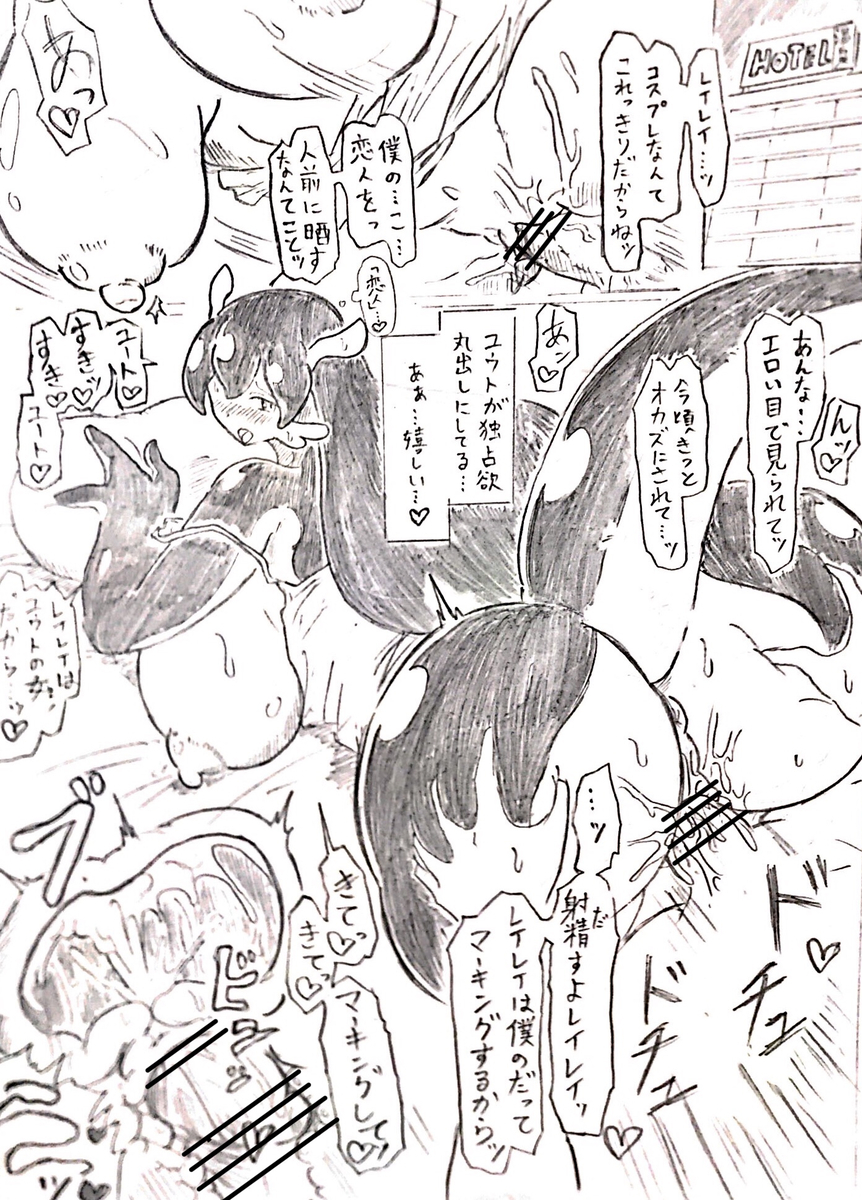 HOTEL
レイレイ…ッ
コスプレなんて
これっきりだからねッ
僕の…こ…
恋人をっ
人前に晒す
なんてことッ
あっ♡
「恋人」…♡
あんな…
エロい目で見られてッ
んッ♡
今頃きっと
オカズにされて…ッ
あン♡
ユウトが独占欲
丸出しにしてる…
あぁ…嬉しい…♡
ユート♡
すきッ♡
すき♡
ユート♡
レイレイは
ユウトの女
だから…ッ♡
…ッ
射精すよレイレイッ
だ
レイレイは僕のだって
マーキングするからッ
きて♡っ
きて♡っ
マーキングして♡
ドチュ
ドチュ♡
ブ
ビューッ